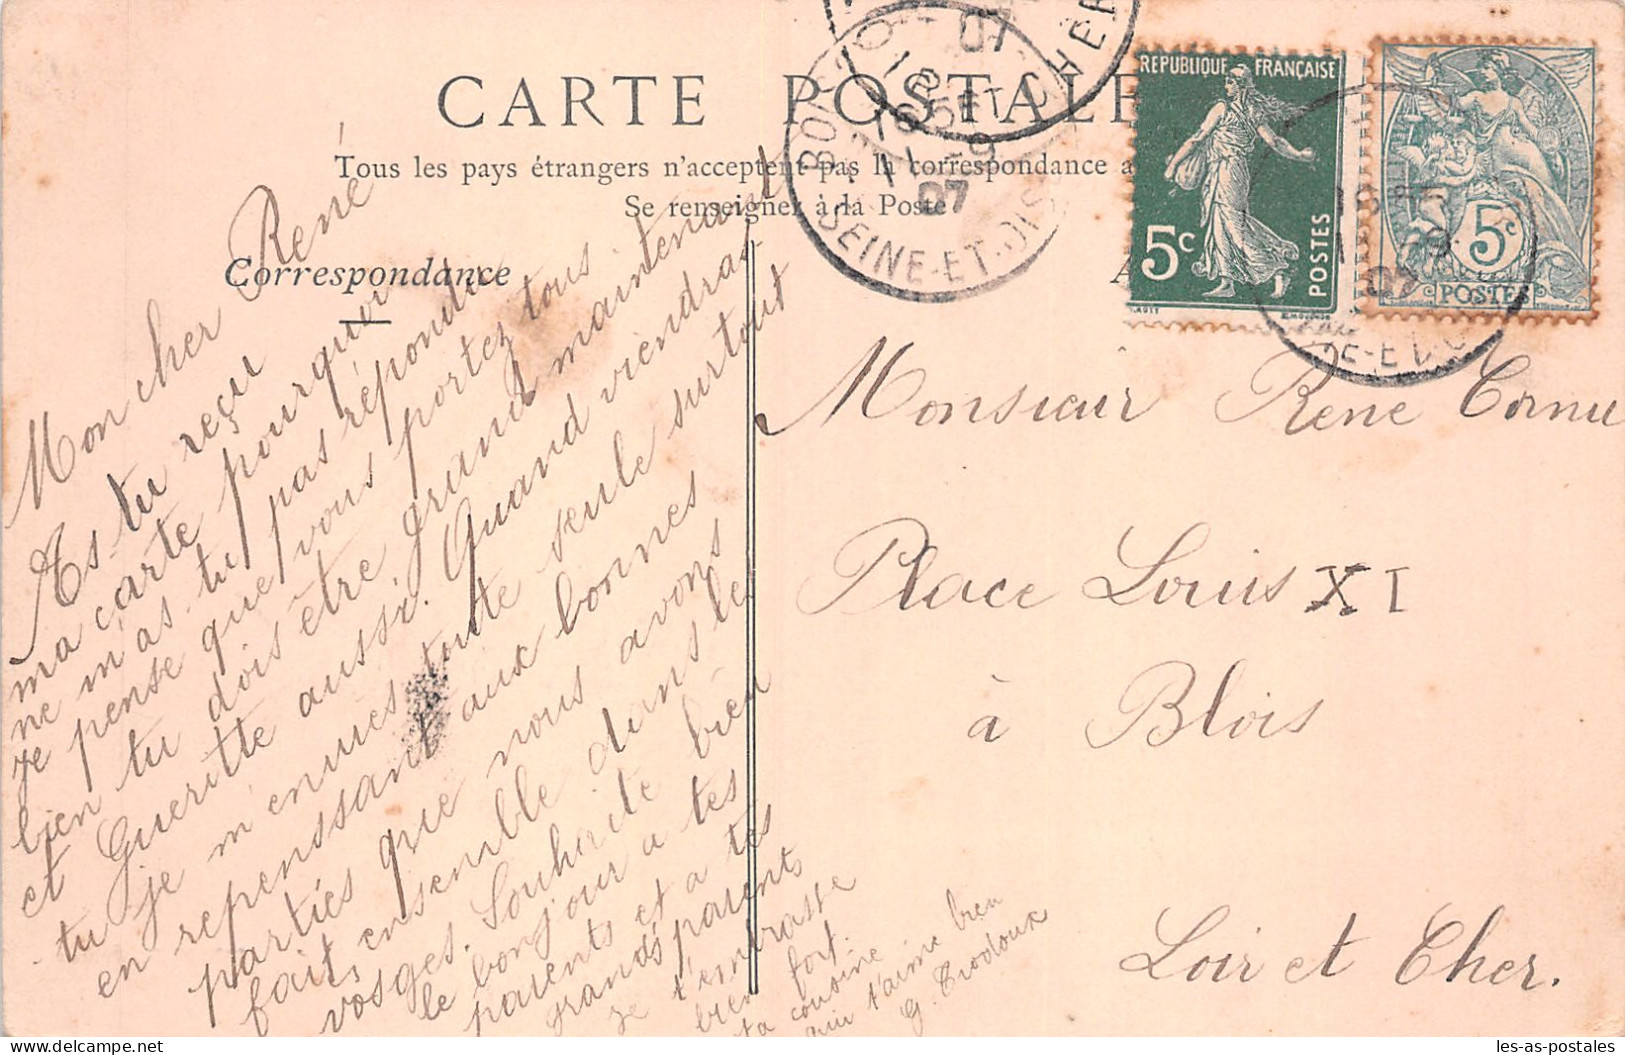 CARTE POSTALE
Tous les pays étrangers n'acceptent pas la correspondance a
Se renseigner à la Poste
Correspondance
Mon cher René
As-tu reçu
ma carte pourquoi
ne m'as-tu pas répondu
je pense que vous portez tous
bien tu dois être grand maintenant
et Gueritte aussi. Quand viendras-
tu je m'ennuies toute seule surtout
en repenssant aux bonnes
parties que nous avons
fait ensemble dans le
vosges. Souhaite bien
le bonjour a tes
parents et a tes
grands parents
je t'embrasse
bien fort.
ta cousine
qui t'aime bien
G. Trodoux
REPUBLIQUE FRANÇAISE
5c
POSTES
5c
POSTES
SEINE-ET-OISE
16
11-9
07
07
11-9
07
Monsieur René Cornu
Place Louis XI
à Blois
Loir et Cher.
les-as-postales